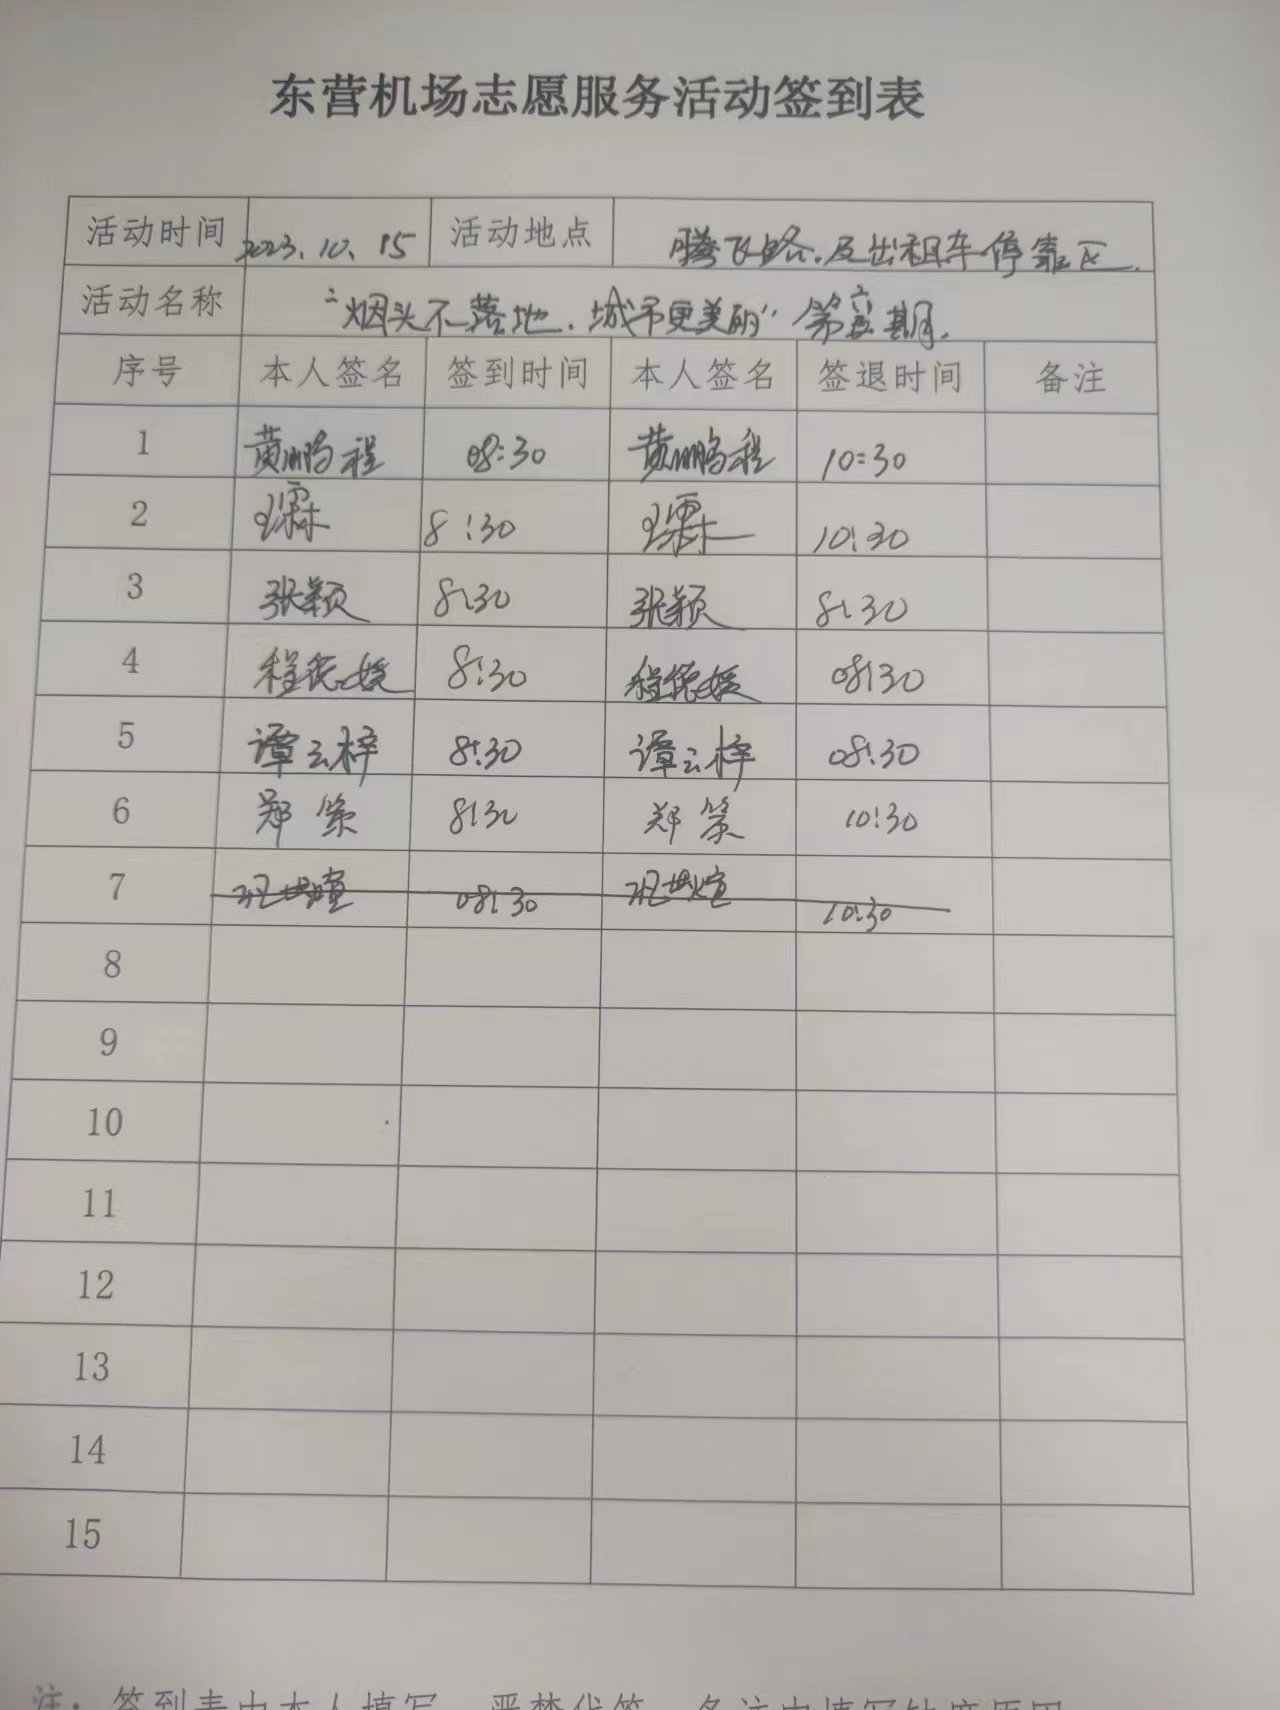 东营机场志愿服务活动签到表
活动时间 2023.10.15 活动地点 腾飞路.及出租车停靠区.
活动名称 “烟头不落地.城市更美丽”第六期.
序号 本人签名 签到时间 本人签名 签退时间 备注
1 黄鹏程 08:30 黄鹏程 10:30
2 王霖 8:30 王霖 10:30
3 张颖 8:30 张颖 8:30
4 程德媛 8:30 程德媛 08:30
5 谭云梓 8:30 谭云梓 08:30
6 郑策 8:30 郑策 10:30
7 08:30 10:30
8
9
10
11
12
13
14
15
注：签到表由本人填写，严禁代签，备注中填写缺席原因